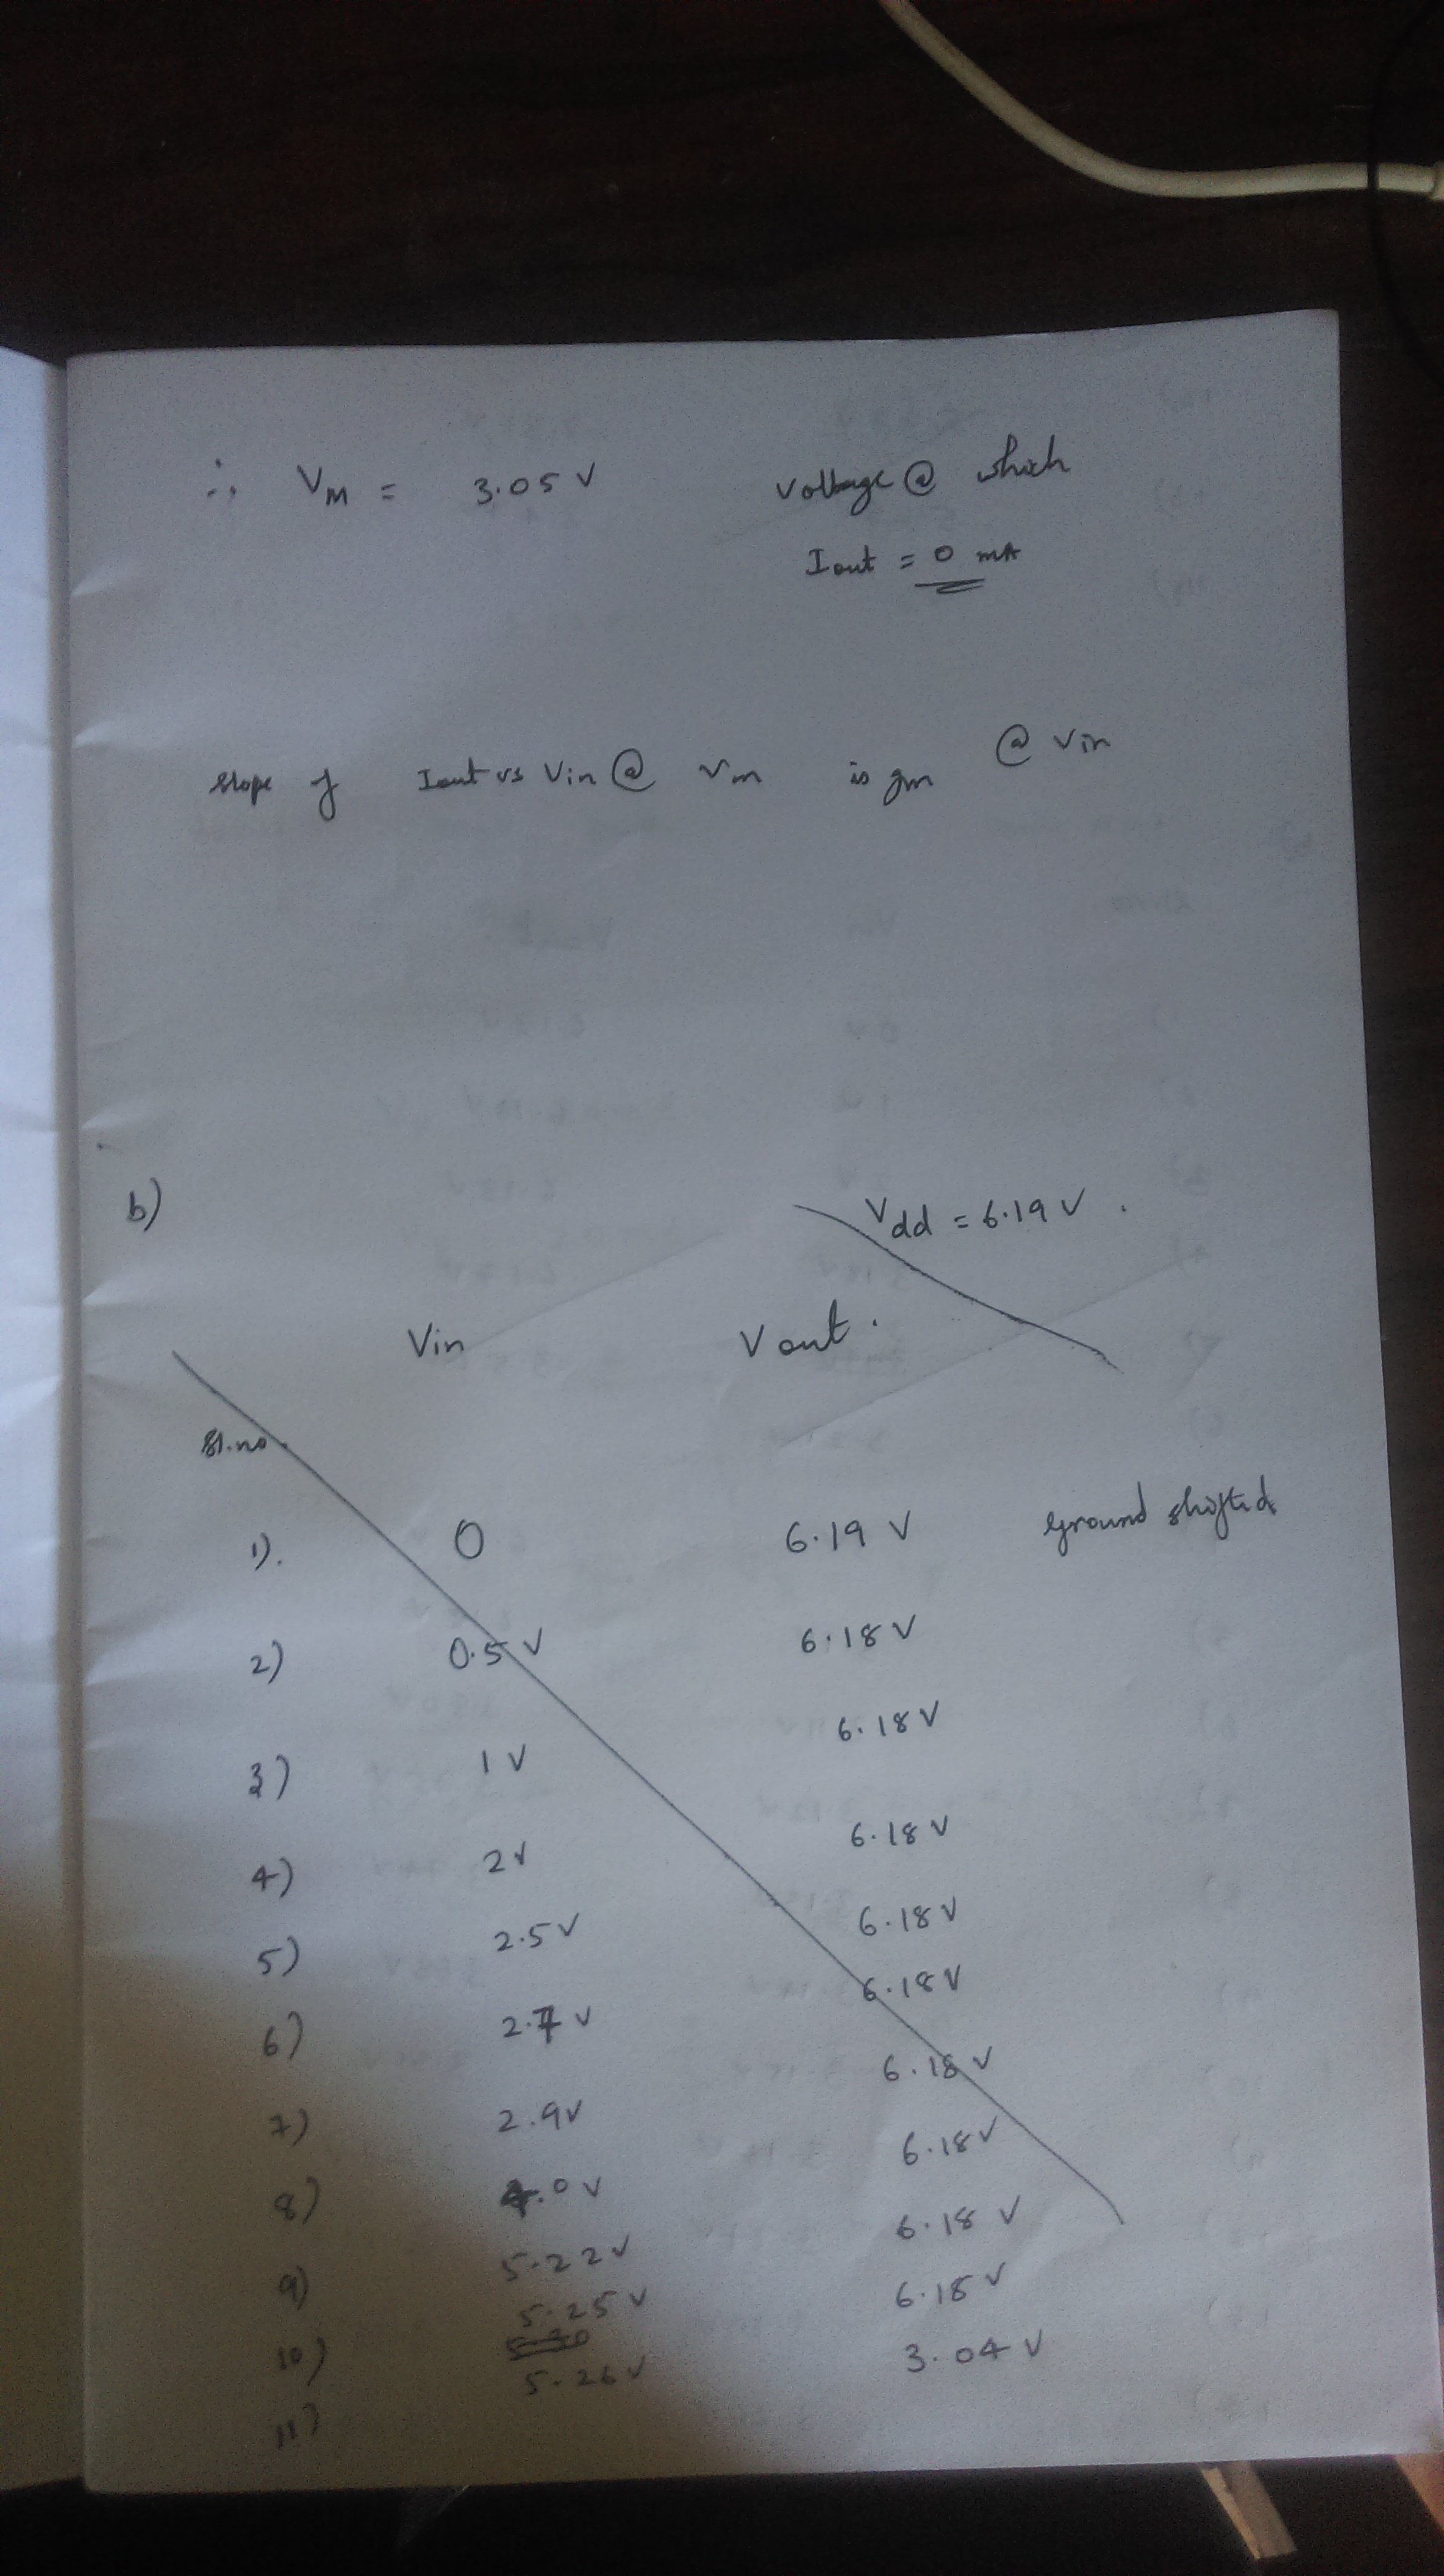 ∴ VM = 3.05 V Voltage @ which
Iout = 0 mA
slope of Iout vs Vin @ Vm is gm @ Vin
b) Vdd = 6.19 V .
Vin Vout .
Sl.no.
1). 0 6.19 V ground shifted
2) 0.5 V 6.18 V
3) 1 V 6.18 V
4) 2 V 6.18 V
5) 2.5 V 6.18 V
6) 2.7 V 6.18 V
7) 2.9 V 6.18 V
8) 4.0 V 6.18 V
9) 5.22 V 6.18 V
10) 5.25 V 6.18 V
11) 5.26 V 3.04 V